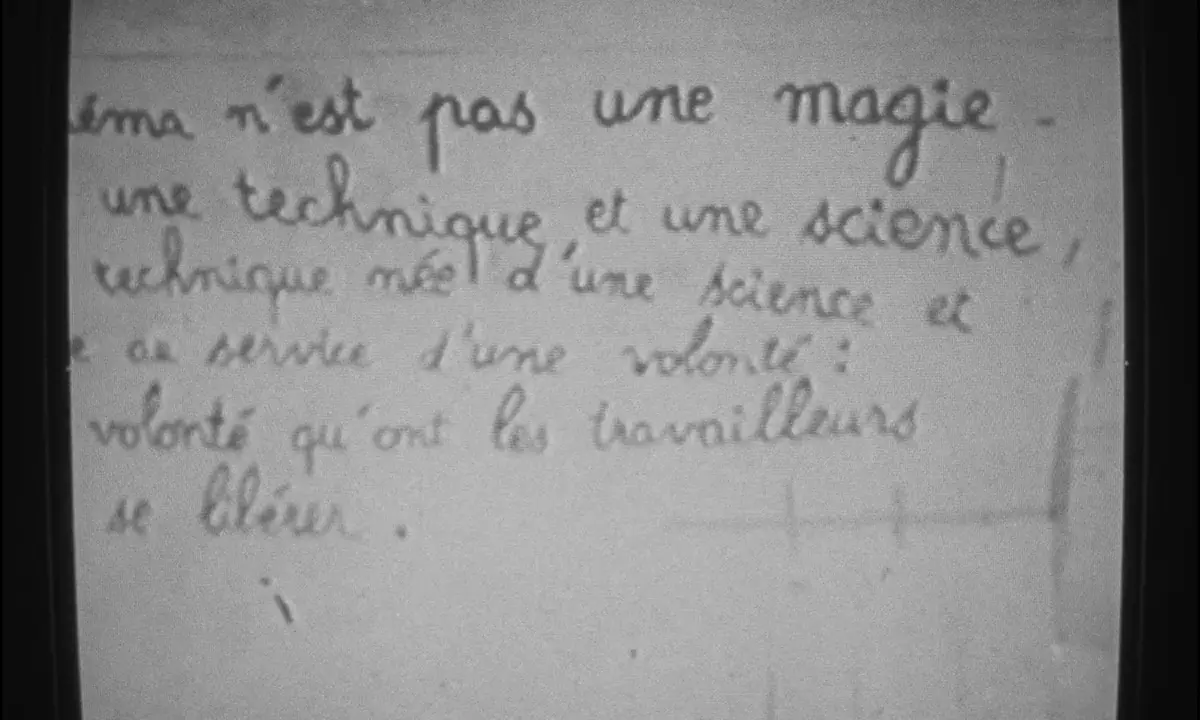 éma n'est pas une magie -
une technique et une science,
technique née d'une science et
e au service d'une volonté :
volonté qu'ont les travailleurs
se libérer.